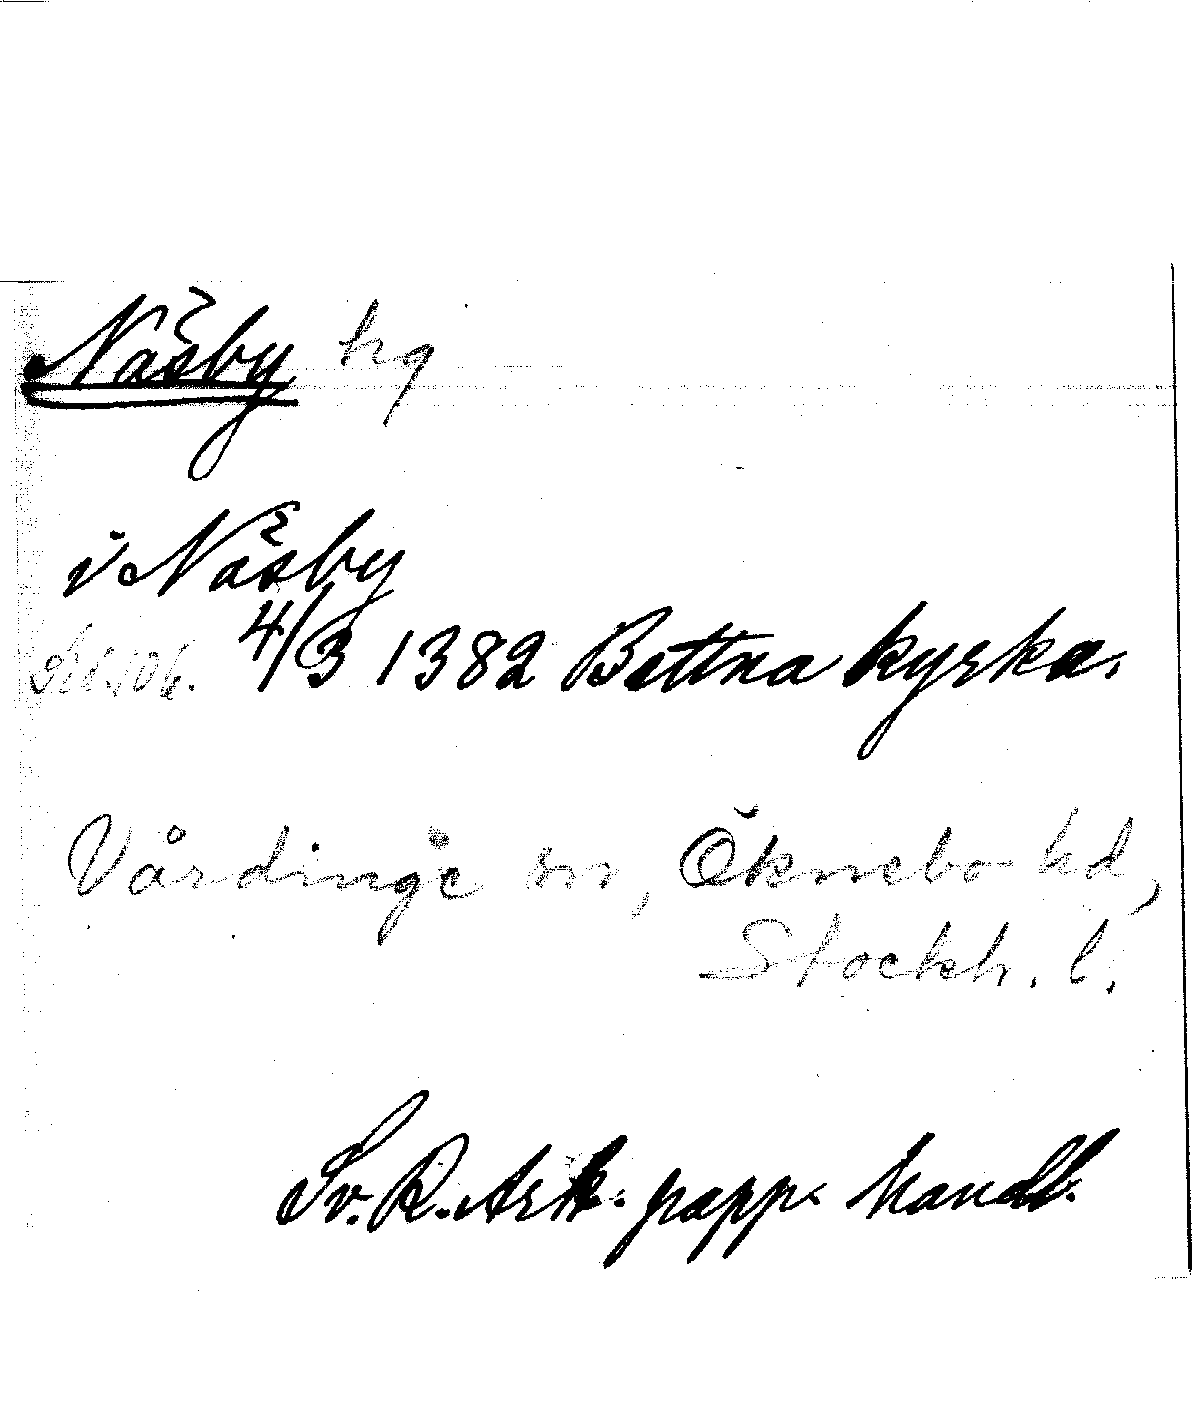 Näsby hg
i Näsby
4/3 1382 Bettna kyrka.
Vårdinge sn, Öknebo hd,
Stockh. l.
Sv. R. Ark. papp. handl.